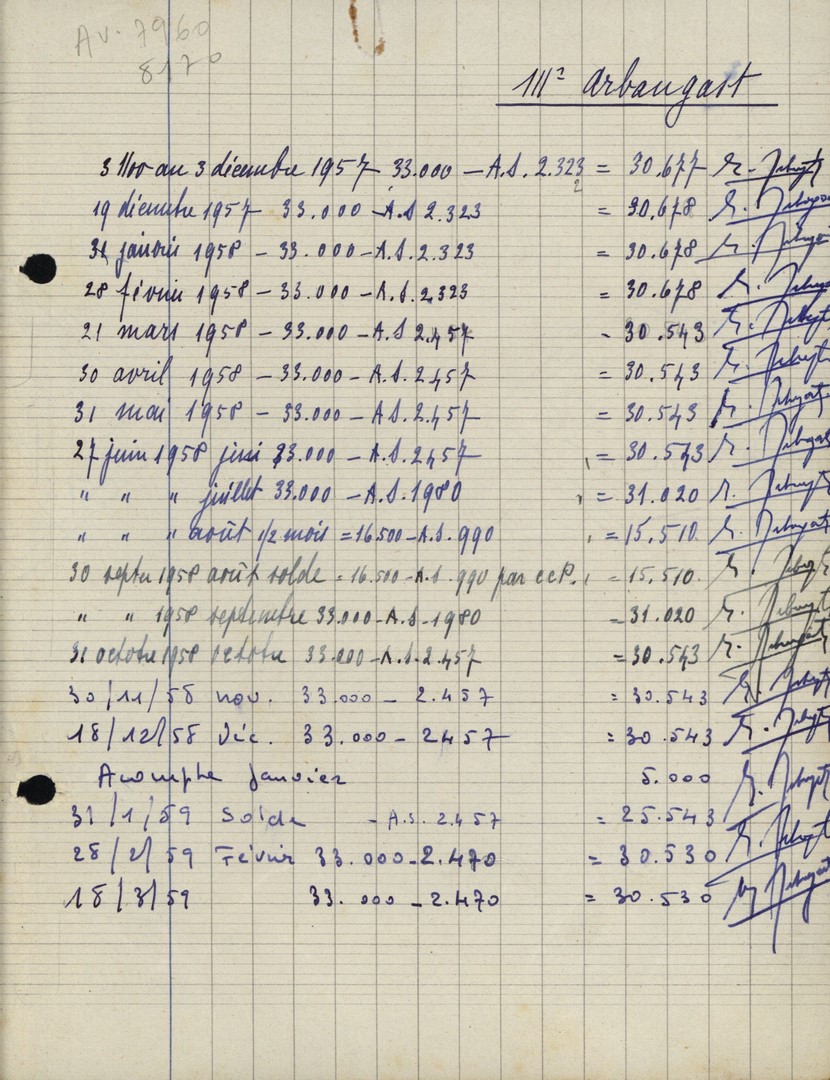 Av. 7960
8170
Arbaugast
au 3 décembre 1957 33.000 - A.S. 2.323 = 30.677
2
19 décembre 1957 33.000 - A.S 2.323 = 30.678
31 janvier 1958 - 33.000 - A.S. 2.323 = 30.678
28 février 1958 - 33.000 - A.S. 2.323 = 30.678
21 mars 1958 - 33.000 - A.S 2.457 - 30.543
30 avril 1958 - 33.000 - A.S. 2.457 = 30.543
31 mai 1958 - 33.000 - A.S. 2.457 = 30.543
27 juin 1958 juin 33.000 - A.S. 2457 = 30.543
" " " juillet 33.000 - A.S. 1980 = 31.020
" " " août 1/2 mois = 16.500 - A.S. 990 = 15.510
30 septre 1958 août solde = 16.500 - A.S. 990 par ccP. = 15.510
" " 1958 septembre 33.000 - A.S - 1980 = 31.020
31 octobre 1958 octobre 33.000 - A.S. 2.457 = 30.543
30/11/58 nov. 33.000 - 2.457 = 30.543
18/12/58 Déc. 33.000 - 2457 = 30.543
Acompte Janvier 5.000
31/1/59 Solde - A.S. 2.457 = 25.543
28/2/59 Février 33.000 - 2.470 = 30.530
18/3/59 33.000 - 2.470 = 30.530